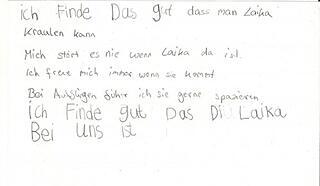 ich Finde Das gut dass man Laika
Kraulen kann
Mich stört es nie wenn Laika da ist.
Ich freue mich immer wenn sie kommt
Bei Ausflügen führ ich sie gerne spazieren
ich Finde gut Das Di Laika
Bei uns ist